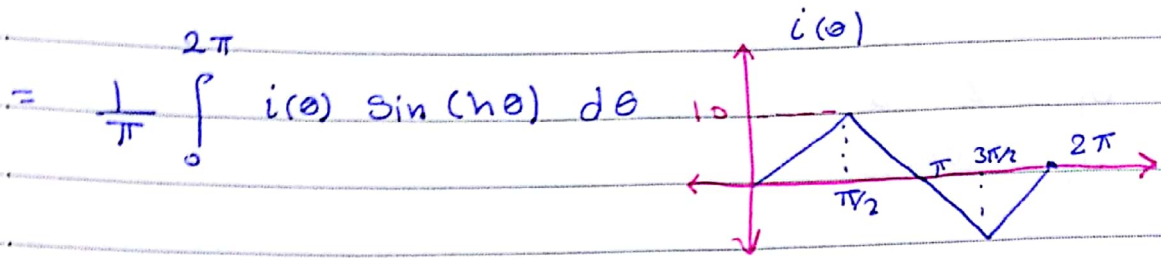 = 1/π ∫₀^2π i(θ) sin(hθ) dθ
i(θ)
10
π/2
π
3π/2
2π